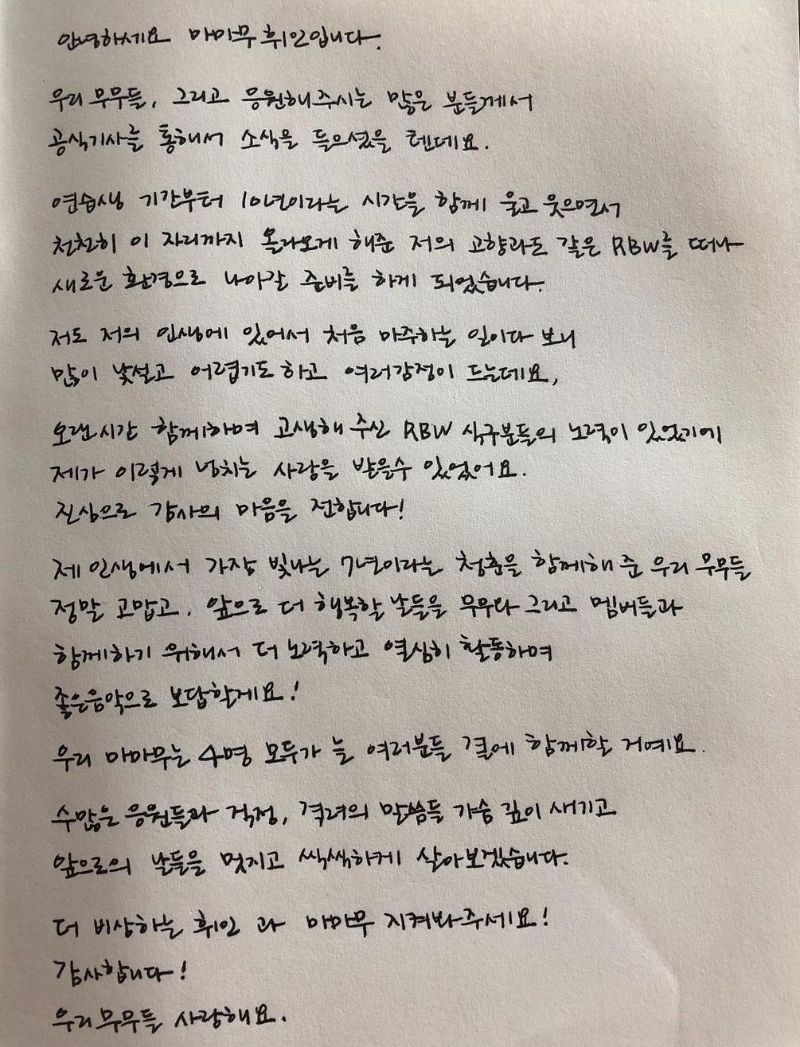 안녕하세요 마마무 휘인입니다.
우리 무무들, 그리고 응원해주시는 많은 분들께서
공식기사를 통해서 소식을 들으셨을 텐데요.
연습생 기간부터 10년이라는 시간을 함께 울고 웃으면서
천천히 이 자리까지 올라오게 해준 저의 고향과도 같은 RBW를 떠나
새로운 환경으로 나아갈 준비를 하게 되었습니다.
저도 저의 인생에 있어서 처음 마주하는 일이다 보니
많이 낯설고 어렵기도 하고 여러감정이 드는데요,
오랜시간 함께하며 고생해 주신 RBW 식구분들의 노력이 있었기에
제가 이렇게 넘치는 사랑을 받을수 있었어요.
진심으로 감사의 마음을 전합니다!
제 인생에서 가장 빛나는 7년이라는 청춘을 함께해 준 우리 무무들
정말 고맙고, 앞으로 더 행복할 날들을 무무와 그리고 멤버들과
함께하기 위해서 더 노력하고 열심히 활동하며
좋은음악으로 보답할게요!
우리 마마무는 4명 모두가 늘 여러분들 곁에 함께할 거예요.
수많은 응원들과 걱정, 격려의 말씀들 가슴 깊이 새기고
앞으로의 날들을 멋지고 씩씩하게 살아보겠습니다.
더 비상하는 휘인 과 마마무 지켜봐주세요!
감사합니다!
우리무무들 사랑해요.